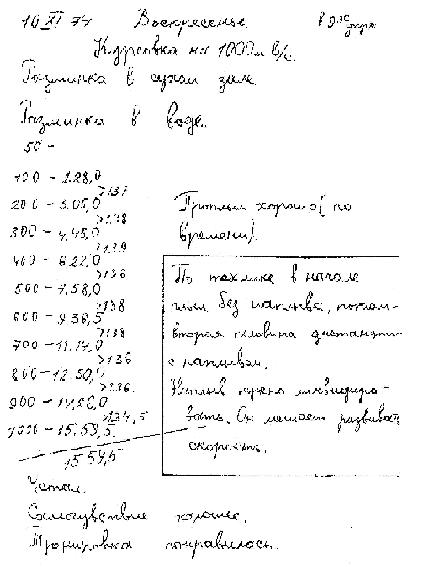 10 XI 74 Воскресенье в 9.30 утра
на 1000 м в/с.
Разминка в сухом зале
Разминка в воде.
50 -
100 - 1.28,0
>1.37
200 - 3.05,0
300 - 4.45,0
400 - 6.22,0
>1.36
500 - 7.58,0
>1.38
600 - 9.36,5
>1.38
700 - 11.14,0
>1.36
800 - 12.50,
>1.36
900 -
>1.34,5
1000 - 15.59,5
15.59,5
Проплыл хорошо (по
времени).
По технике в начале
плыл без наплыва, потом-
вторая половина дистанции
с наплывом.
Наплыв нужно ликвидиро-
вать. Он мешает развивать
скорость.
Устал.
Самочувствие хорошее.
Тренировка понравилось.